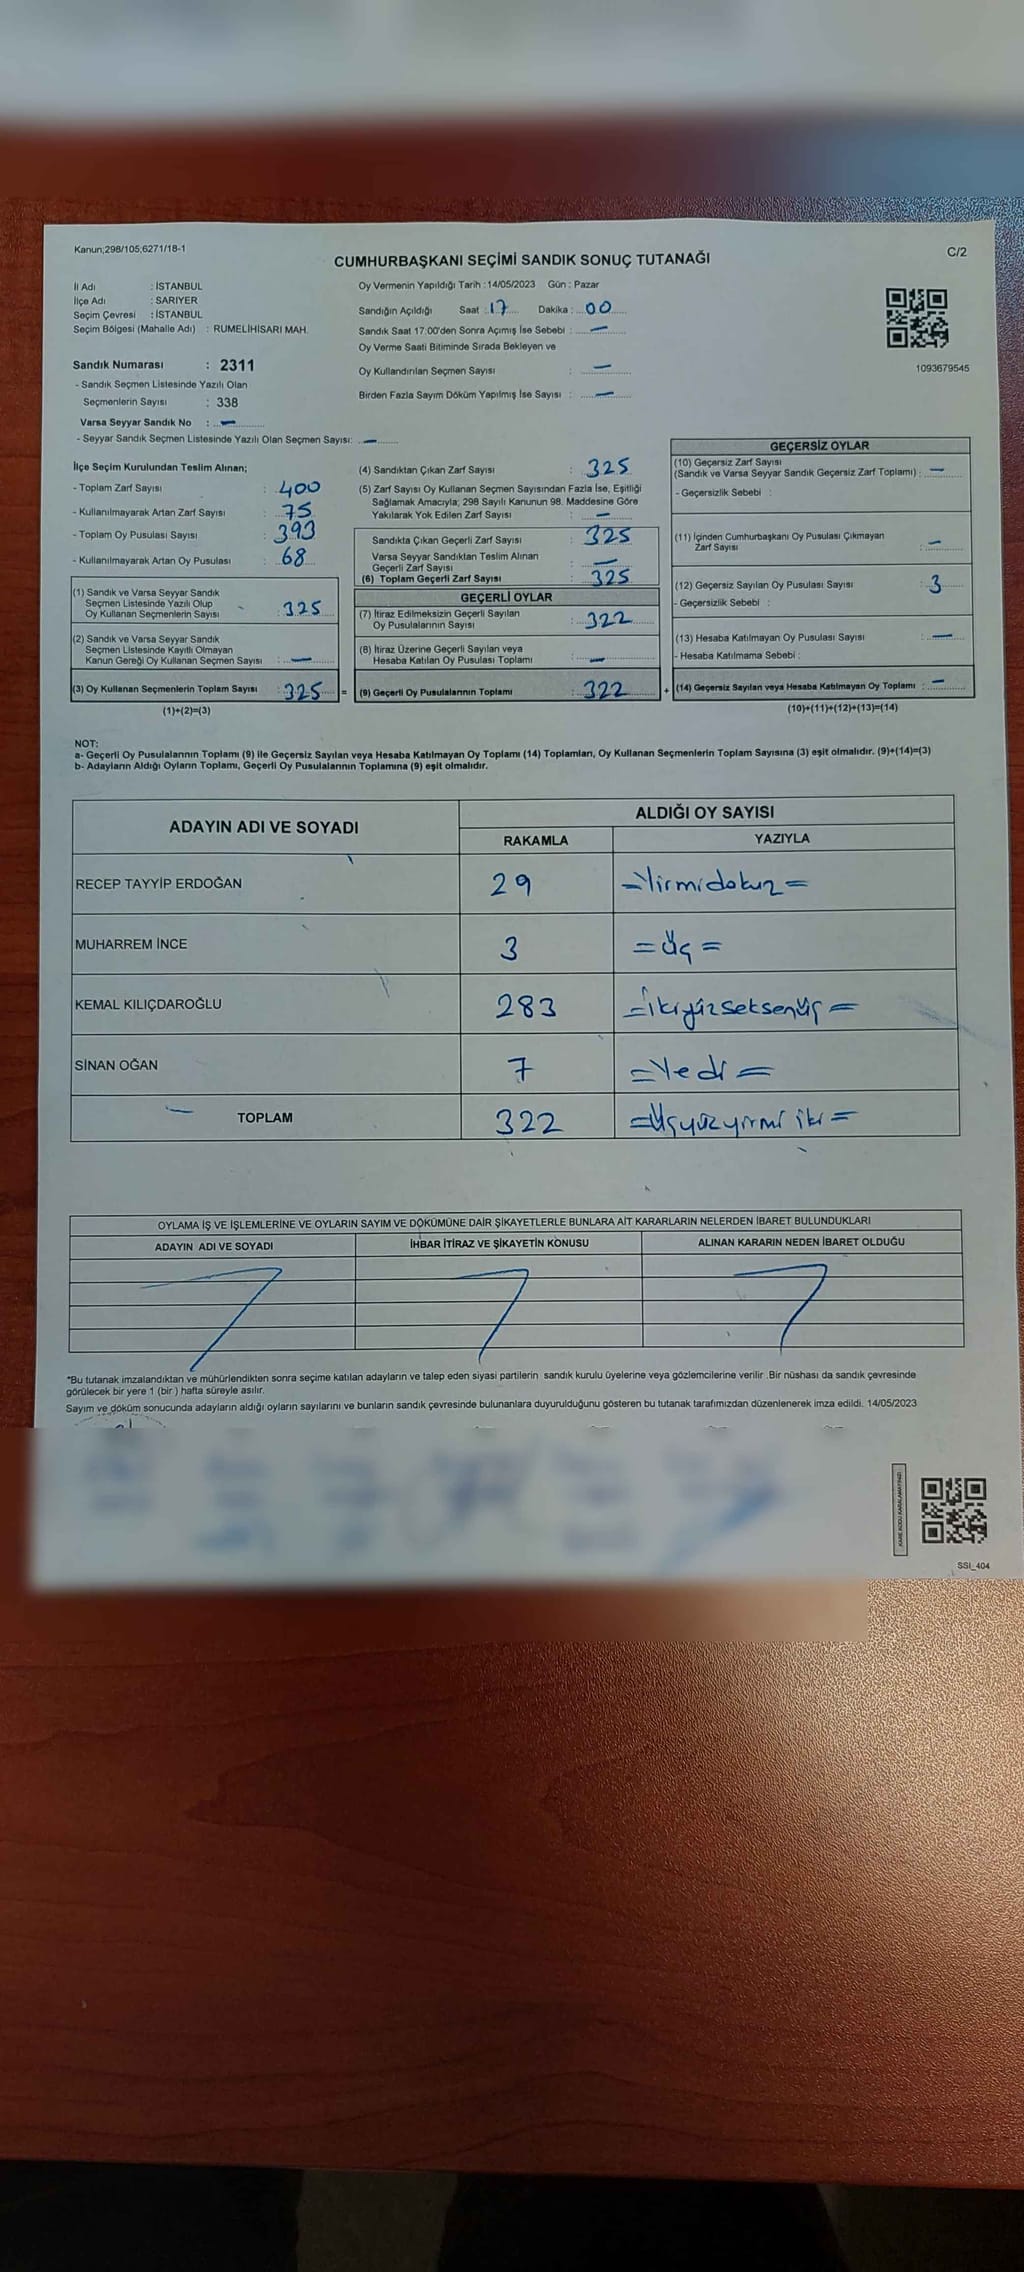 Kanun;298/105;6271/18-1
C/2
CUMHURBAŞKANI SEÇİMİ SANDIK SONUÇ TUTANAĞI
İl Adı : İSTANBUL
İlçe Adı : SARIYER
Seçim Çevresi : İSTANBUL
Seçim Bölgesi (Mahalle Adı) : RUMELİHİSARI MAH.
Sandık Numarası : 2311
- Sandık Seçmen Listesinde Yazılı Olan
Seçmenlerin Sayısı : 338
Varsa Seyyar Sandık No : —
- Seyyar Sandık Seçmen Listesinde Yazılı Olan Seçmen Sayısı: —
Oy Vermenin Yapıldığı Tarih : 14/05/2023 Gün : Pazar
Sandığın Açıldığı Saat : 17 Dakika : 00
Sandık Saat 17:00'den Sonra Açımış İse Sebebi : —
Oy Verme Saati Bitiminde Sırada Bekleyen ve
Oy Kullandırılan Seçmen Sayısı : —
Birden Fazla Sayım Döküm Yapılmış İse Sayısı : —
1093679545
İlçe Seçim Kurulundan Teslim Alınan;
- Toplam Zarf Sayısı : 400
- Kullanılmayarak Artan Zarf Sayısı : 75
- Toplam Oy Pusulası Sayısı : 393
- Kullanılmayarak Artan Oy Pusulası : 68
(1) Sandık ve Varsa Seyyar Sandık
Seçmen Listesinde Yazılı Olup
Oy Kullanan Seçmenlerin Sayısı : 325
(2) Sandık ve Varsa Seyyar Sandık
Seçmen Listesinde Kayıtlı Olmayan
Kanun Gereği Oy Kullanan Seçmen Sayısı : —
(3) Oy Kullanan Seçmenlerin Toplam Sayısı : 325 =
(1)+(2)=(3)
(4) Sandıktan Çıkan Zarf Sayısı : 325
(5) Zarf Sayısı Oy Kullanan Seçmen Sayısından Fazla İse, Eşitliği
Sağlamak Amacıyla; 298 Sayılı Kanunun 98. Maddesine Göre
Yakılarak Yok Edilen Zarf Sayısı : —
Sandıkta Çıkan Geçerli Zarf Sayısı : 325
Varsa Seyyar Sandıktan Teslim Alınan
Geçerli Zarf Sayısı : —
(6) Toplam Geçerli Zarf Sayısı : 325
GEÇERLİ OYLAR
(7) İtiraz Edilmeksizin Geçerli Sayılan
Oy Pusulalarının Sayısı : 322
(8) İtiraz Üzerine Geçerli Sayılan veya
Hesaba Katılan Oy Pusulası Toplamı : —
(9) Geçerli Oy Pusulalarının Toplamı : 322 +
GEÇERSİZ OYLAR
(10) Geçersiz Zarf Sayısı
(Sandık ve Varsa Seyyar Sandık Geçersiz Zarf Toplamı) : —
- Geçersizlik Sebebi :
(11) İçinden Cumhurbaşkanı Oy Pusulası Çıkmayan
Zarf Sayısı : —
(12) Geçersiz Sayılan Oy Pusulası Sayısı : 3
- Geçersizlik Sebebi :
(13) Hesaba Katılmayan Oy Pusulası Sayısı : —
- Hesaba Katılmama Sebebi :
(14) Geçersiz Sayılan veya Hesaba Katılmayan Oy Toplamı : —
(10)+(11)+(12)+(13)=(14)
NOT:
a- Geçerli Oy Pusulalarının Toplamı (9) ile Geçersiz Sayılan veya Hesaba Katılmayan Oy Toplamı (14) Toplamları, Oy Kullanan Seçmenlerin Toplam Sayısına (3) eşit olmalıdır. (9)+(14)=(3)
b- Adayların Aldığı Oyların Toplamı, Geçerli Oy Pusulalarının Toplamına (9) eşit olmalıdır.
ADAYIN ADI VE SOYADI
ALDIĞI OY SAYISI
RAKAMLA YAZIYLA
RECEP TAYYİP ERDOĞAN 29 =Yirmidokuz=
MUHARREM İNCE 3 =Üç=
KEMAL KILIÇDAROĞLU 283 =İkiyüzseksenüç=
SİNAN OĞAN 7 =Yedi=
TOPLAM 322 =Üçyüzyirmi iki=
OYLAMA İŞ VE İŞLEMLERİNE VE OYLARIN SAYIM VE DÖKÜMÜNE DAİR ŞİKAYETLERLE BUNLARA AİT KARARLARIN NELERDEN İBARET BULUNDUKLARI
ADAYIN ADI VE SOYADI İHBAR İTİRAZ VE ŞİKAYETİN KONUSU ALINAN KARARIN NEDEN İBARET OLDUĞU
*Bu tutanak imzalandıktan ve mühürlendikten sonra seçime katılan adayların ve talep eden siyasi partilerin sandık kurulu üyelerine veya gözlemcilerine verilir. Bir nüshası da sandık çevresinde
görülecek bir yere 1 (bir) hafta süreyle asılır.
Sayım ve döküm sonucunda adayların aldığı oyların sayılarını ve bunların sandık çevresinde bulunanlara duyurulduğunu gösteren bu tutanak tarafımızdan düzenlenerek imza edildi. 14/05/2023
KARE KODU KARALAMAYINIZ!
SSI_404